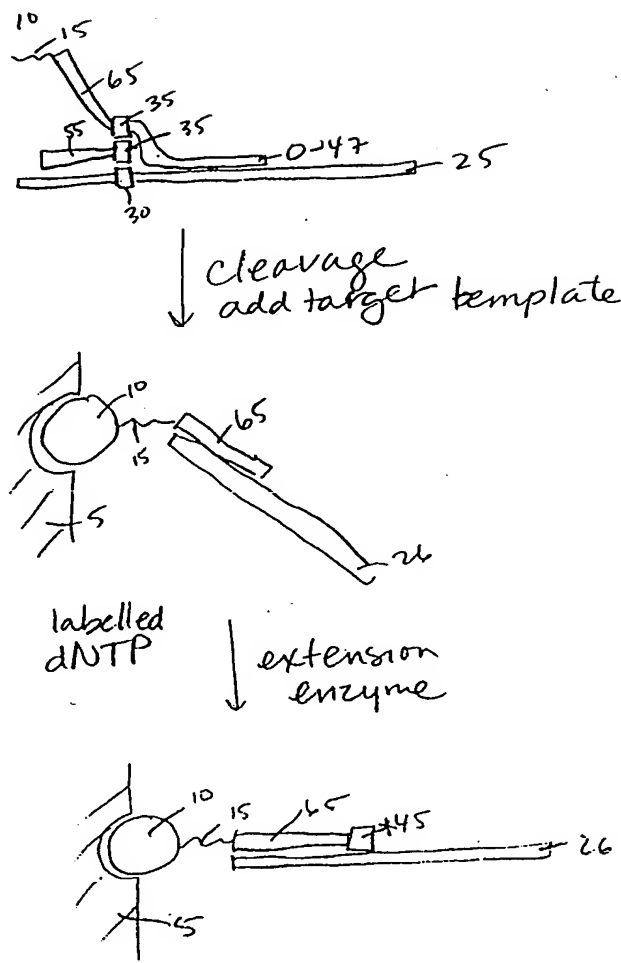 10
15
65
35
55
35
0-47
25
30
cleavage
add target template
10
65
15
5
26
labelled
dNTP
extension
enzyme
10
15
65
*45
26
5